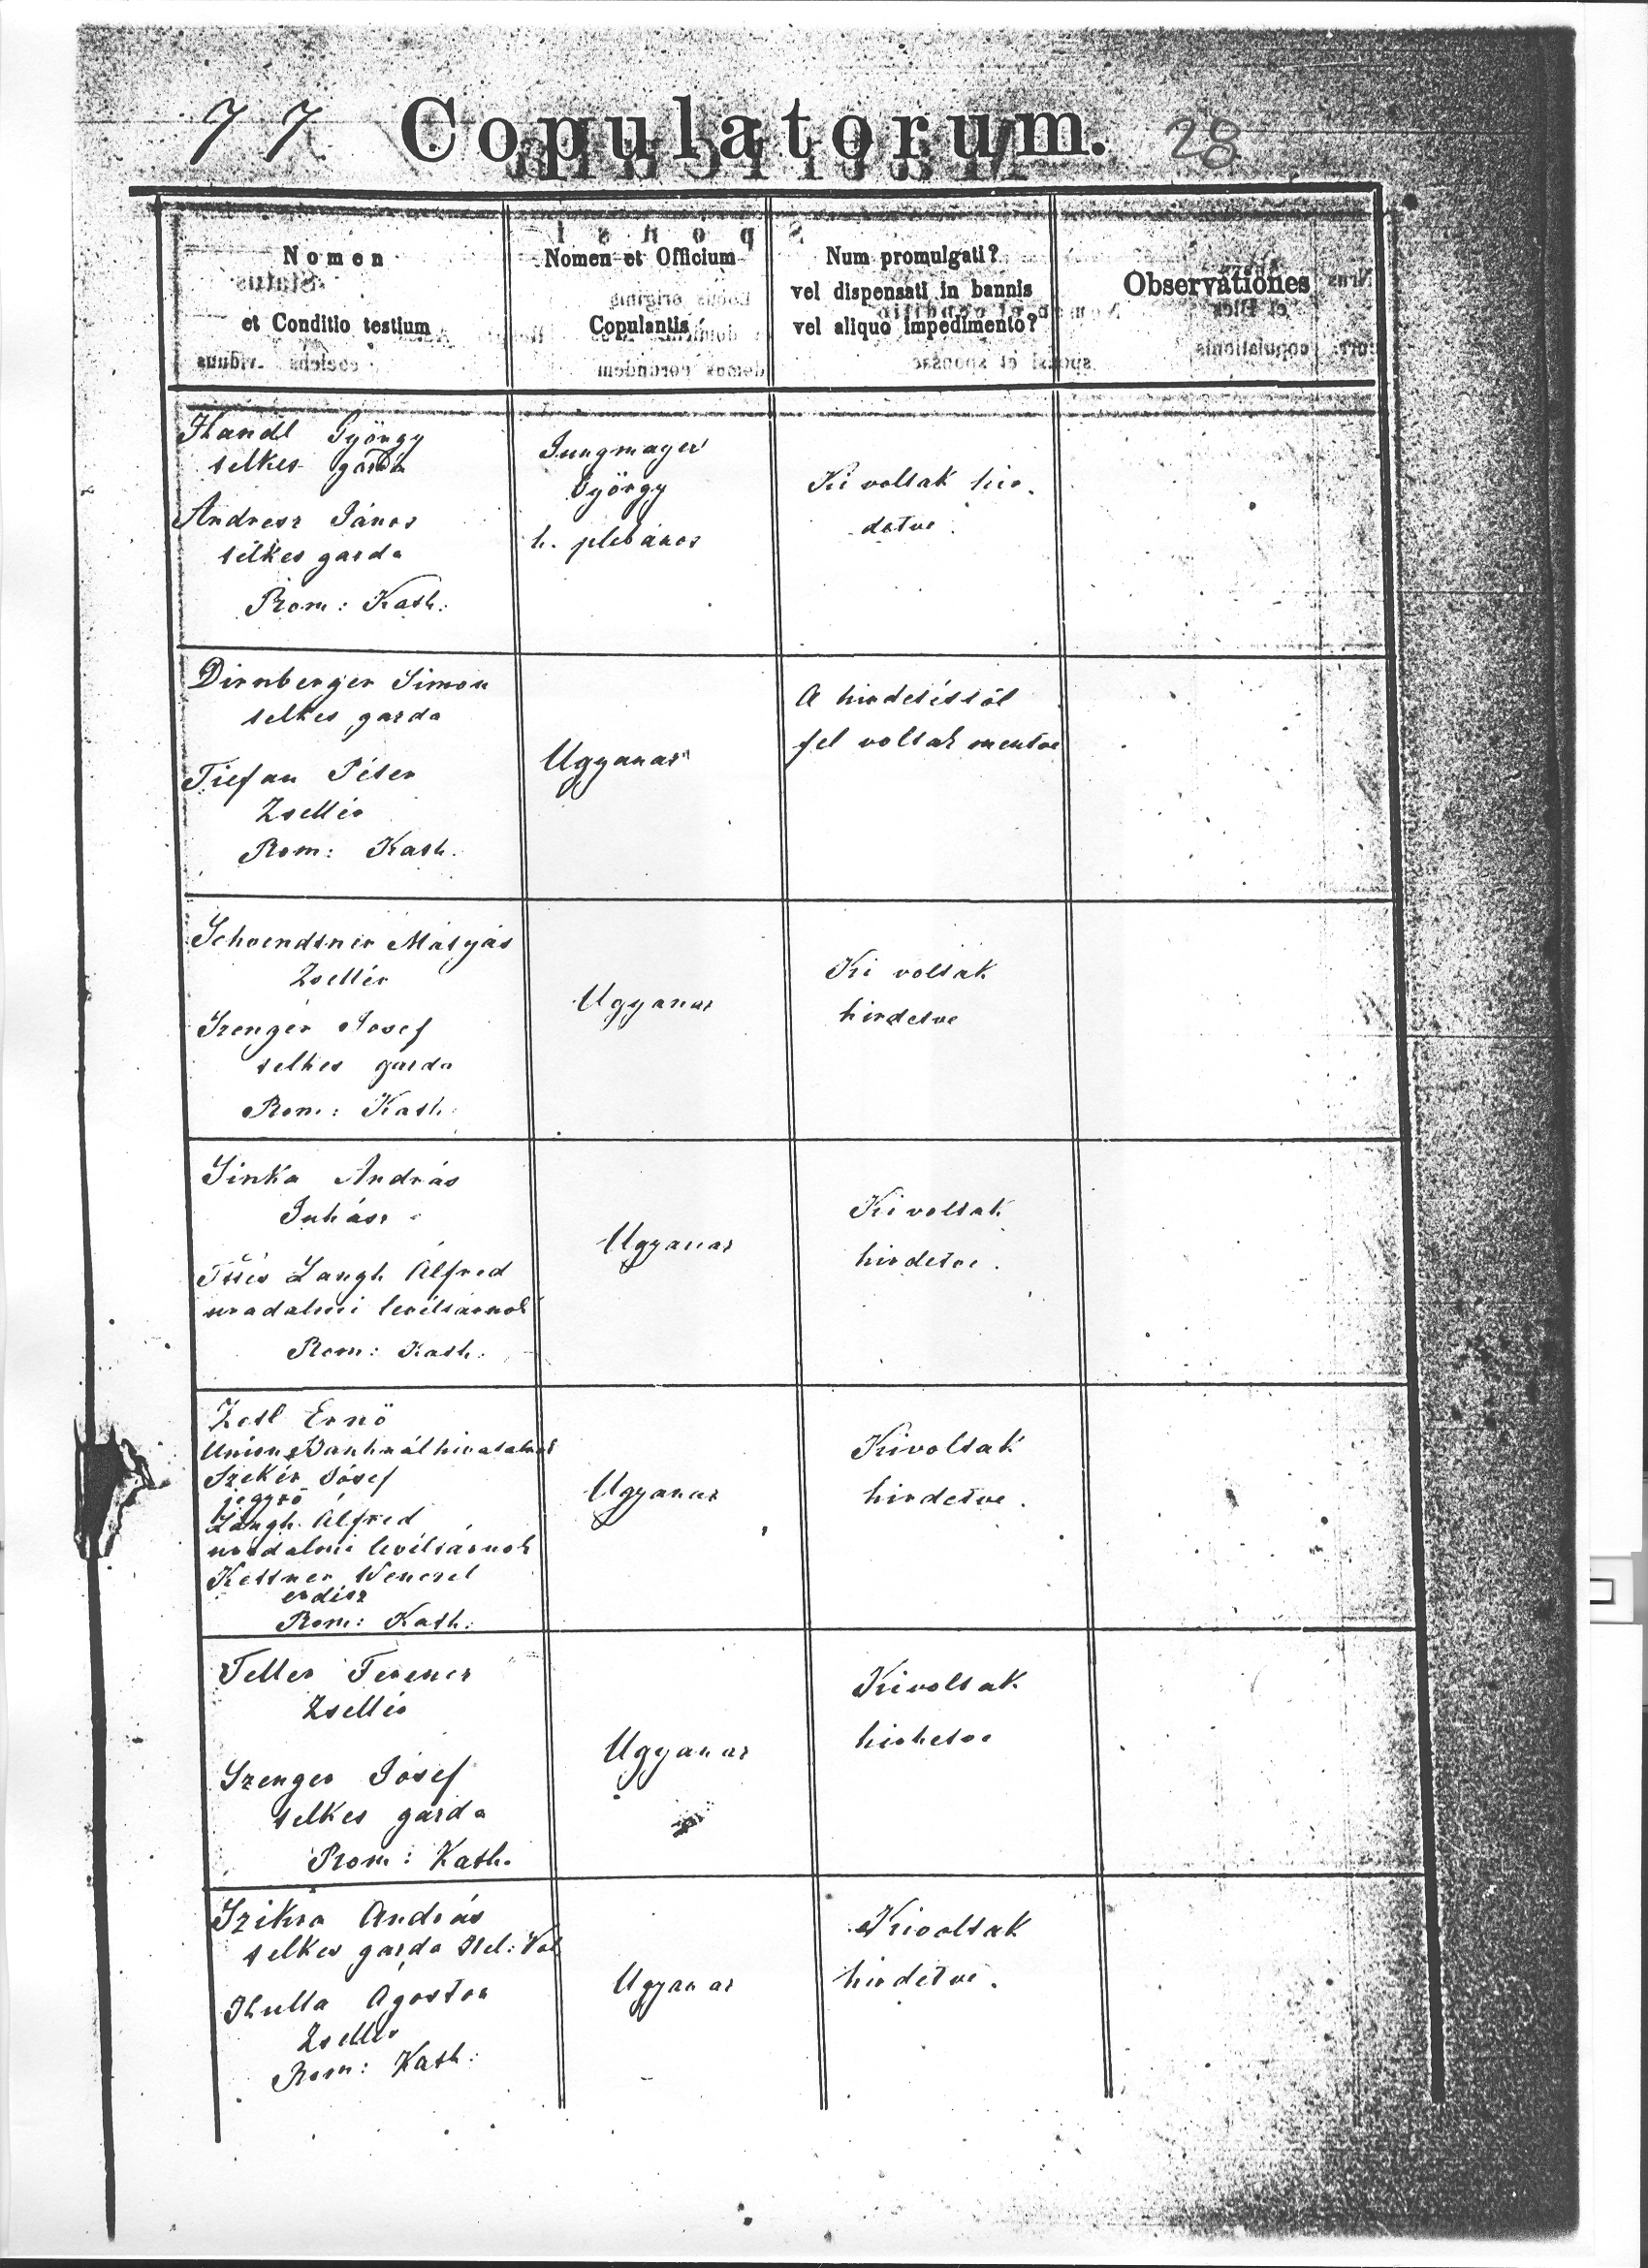 77 Copulatorum. 28
Nomen
et Conditio testium
Nomen et Officium
Copulantis
Num promulgati?
vel dispensati in bannis
vel aliquo impedimento?
Observationes
Handl György
telkes gazda
Andresz János
telkes gazda
Rom: Kath:
Jungmayer
György
h. plebános
Ki voltak hir-
detve.
Dirnberger Simon
telkes gazda
Péter
Zsellér
Rom: Kath.
Ugyanaz
A hirdetéstöl
fel voltak mentve
Mátyás
Zsellér
Szenger Josef
telkes gazda
Rom: Kath:
Ugyanaz
Ki voltak
hirdetve
Sinka András
Juhász
Langh Álfred
uradalmi levéltárnok
Rom: Kath.
Ugyanaz
Ki voltak
hirdetve.
Ernö
Union Banknál hivatalnok
Szekér Jósef
jegyzö
Langh Álfred
uradalmi levéltárnok
Kettner Wenczel
erdész
Rom: Kath.
Ugyanaz
Kivoltak
hirdetve.
Teller Ferencz
Zsellér
Szenger Jósef
telkes gazda
Rom: Kath.
Ugyanaz
Kivoltak
hirhetve
Szikra András
telkes gazda Hel: Val
Hulla Ágoston
Zsellér
Rom: Kath:
Ugyanaz
Kivoltak
hirdetve.